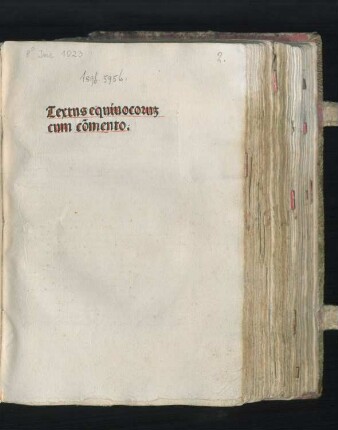 8° Inc 1023
2.
1896. 5956.
Textus equiuocorum
cum cōmento.